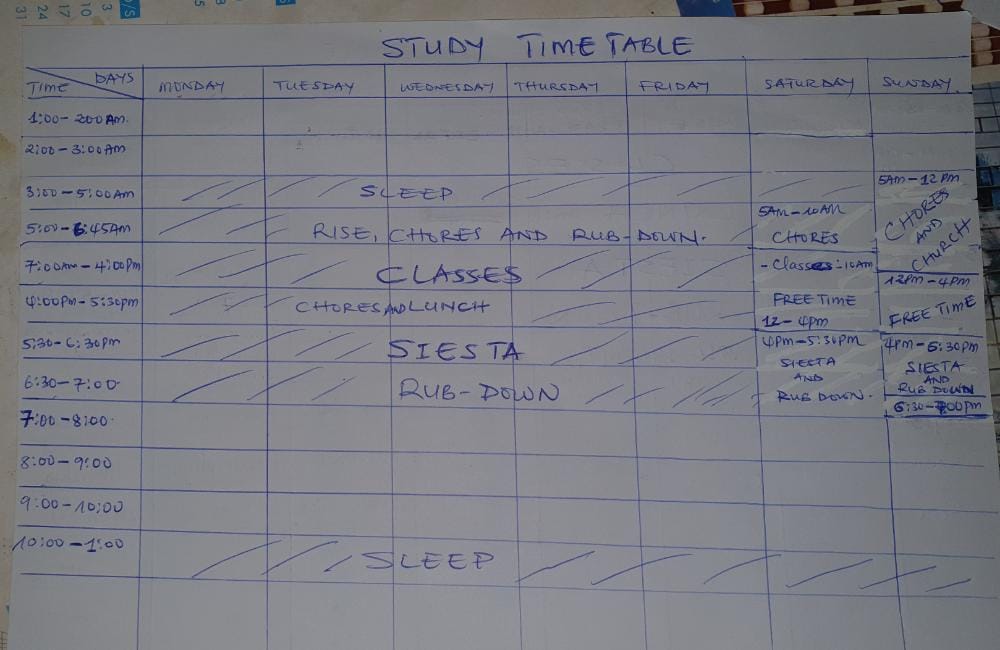 31 24 17 10 3 S/O
5
STUDY TIME TABLE
TIME DAYS MONDAY TUESDAY WEDNESDAY THURSDAY FRIDAY SATURDAY SUNDAY
1:00-200Am.
2:00-3:00Am
3:00-5:00Am SLEEP
5AM-12pm
CHORES
AND
CHURCH
5:00-6:45Am RISE, CHORES AND RUB-DOWN.
5AM-10AM
CHORES
7:00AM-4:00pm CLASSES
- Classes:10AM
12pm-4pm
FREE TIME
4:00PM-5:30pm CHORES AND LUNCH
FREE TIME
12-4pm
5:30-6:30pm SIESTA
4pm-5:30PM
SIESTA
AND
RUB DOWN.
4pm-6:30pm
SIESTA
AND
RUB DOWN
6:30-7:00 RUB-DOWN
6:30-700pm
7:00-8:00
8:00-9:00
9:00-10:00
10:00-1:00 SLEEP